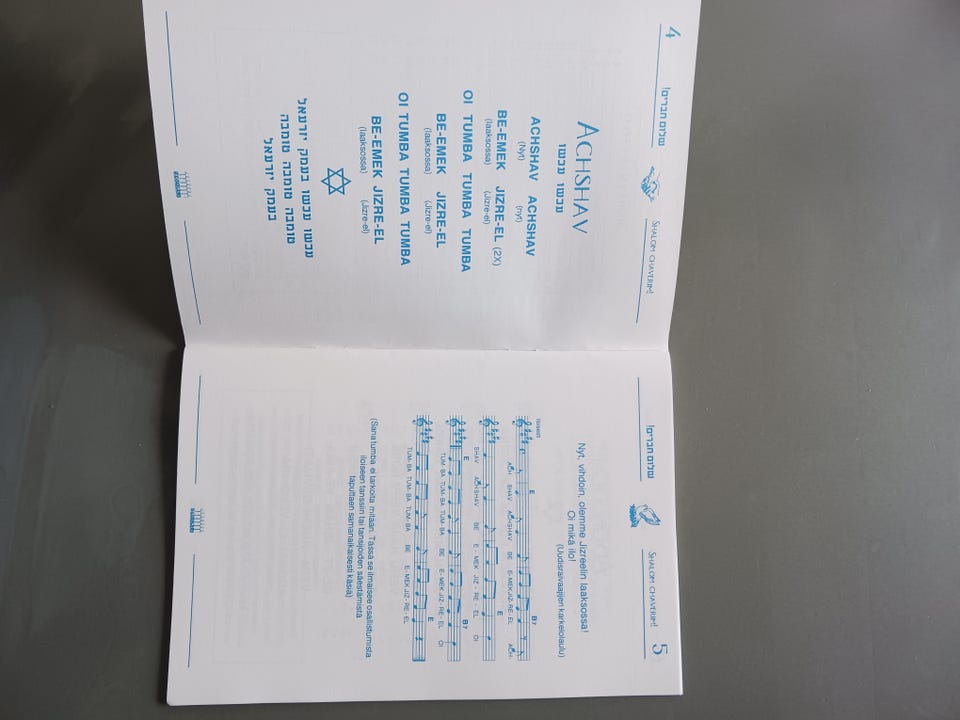 4
שלום חברים!
SHALOM CHAVERIM!
ACHSHAV
עכשו עכשו
ACHSHAV ACHSHAV
(Nyt) (nyt)
BE-EMEK JIZRE-EL (2X)
(laaksossa) (Jizre-el)
OI TUMBA TUMBA TUMBA
BE-EMEK JIZRE-EL
(laaksossa) (Jizre-el)
OI TUMBA TUMBA TUMBA
BE-EMEK JIZRE-EL
(laaksossa) (Jizre-el)
עכשו עכשו בעמק יזרעאל
טומבה טומבה טומבה
בעמק יזרעאל
שלום חברים!
SHALOM CHAVERIM!
5
Nyt, vihdoin, olemme Jizreelin laaksossa!
Oi mikä ilo!
(Uudisraivaajien karkelolaulu)
E B7
ACH- SHAV ACHSHAV BE E-MEK JIZ-RE-EL ACH-
E
SHAV ACHSHAV BE E-MEK JIZ-RE-EL OI
E B7
TUM-BA TUM-BA TUM-BA BE E-MEK JIZ-RE-EL OI
E
TUM-BA TUM-BA TUM-BA BE E-MEK JIZ-RE-EL
(Sana tumba ei tarkoita mitään. Tässä se ilmaisee osallistumista
iloiseen tanssiin tai tansijoiden säestämistä
taputtaen samanaikaisesti käsiä)